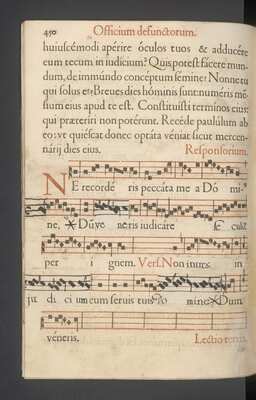 450 Officium defunctorum.
huiuscémodi aperíre óculos tuos & adducére
eum tecum in iudicium? Quis potest fácere mun-
dum, de immúndo concéptum sémine? Nonne tu
qui solus es? Breues dies hóminis sunt: numérus mé-
sium eius apud te est. Constituísti términos eius:
qui præteríri non potérunt. Recéde paulúlum ab
eo: vt quiéscat donec optáta véniat sicut mercen-
nárij dies eius. Responsorium.
NE recordé ris peccáta me a Dó mi-
ne, Dũ ve neris iudicáre
per i gnem. Vers. Non intres in
iu di ci um cum seruo tuo Do mine Dum
véneris. Lectio tertia.